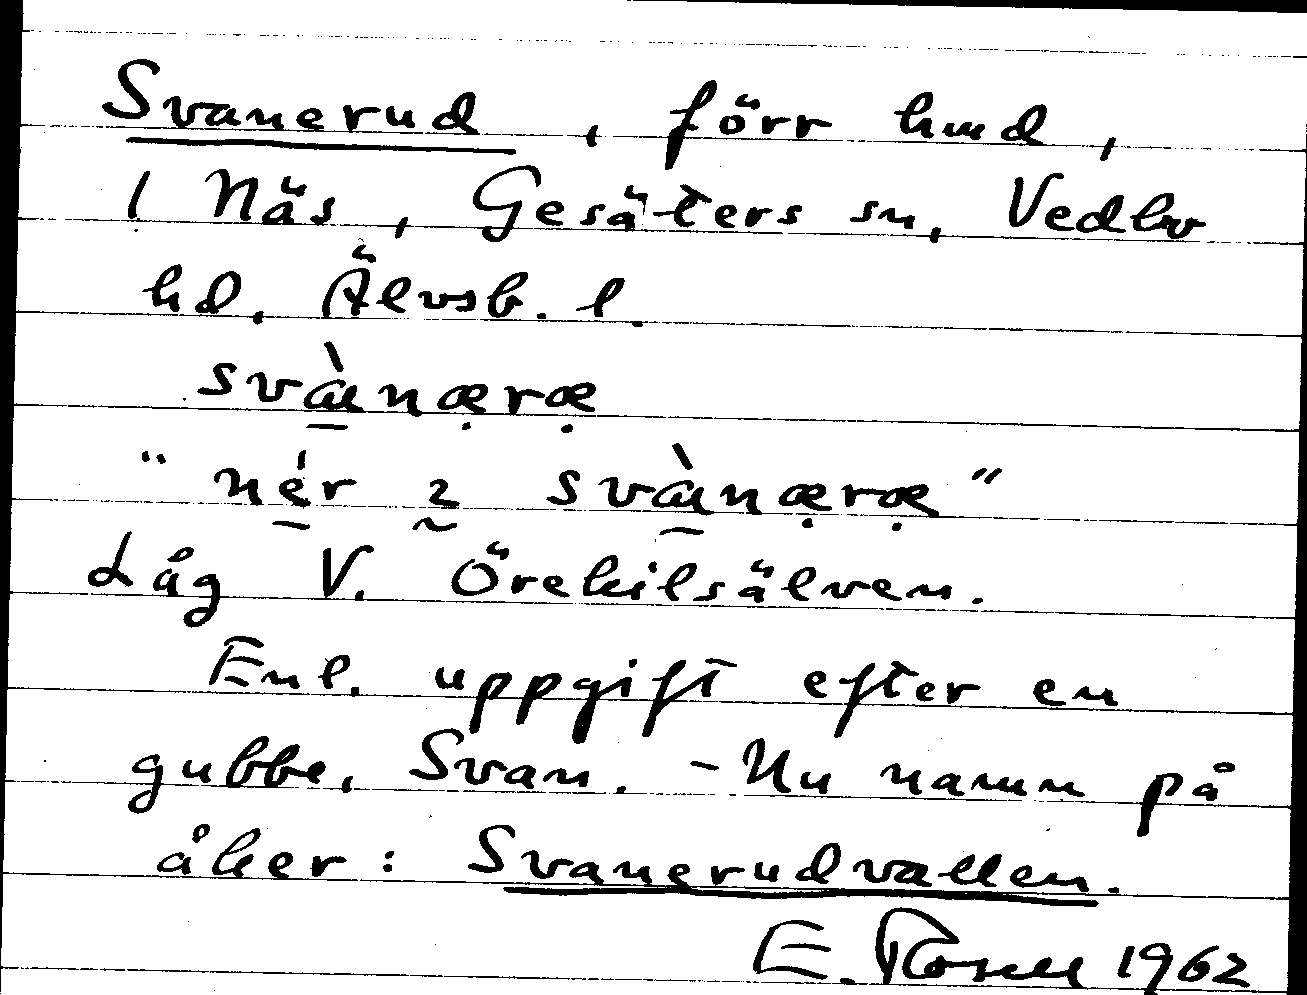 Svanerud, förr hmd,
i Näs, Gesäters sn, Vedbo
hd, Älvsb. l.
svànæræ
"nér 2 svànæræ"
Låg V. Örekilsälven.
Enl. uppgift efter en
gubbe, Svan. - Nu namn på
åker: Svanerudvallen.
E. Rosell 1962